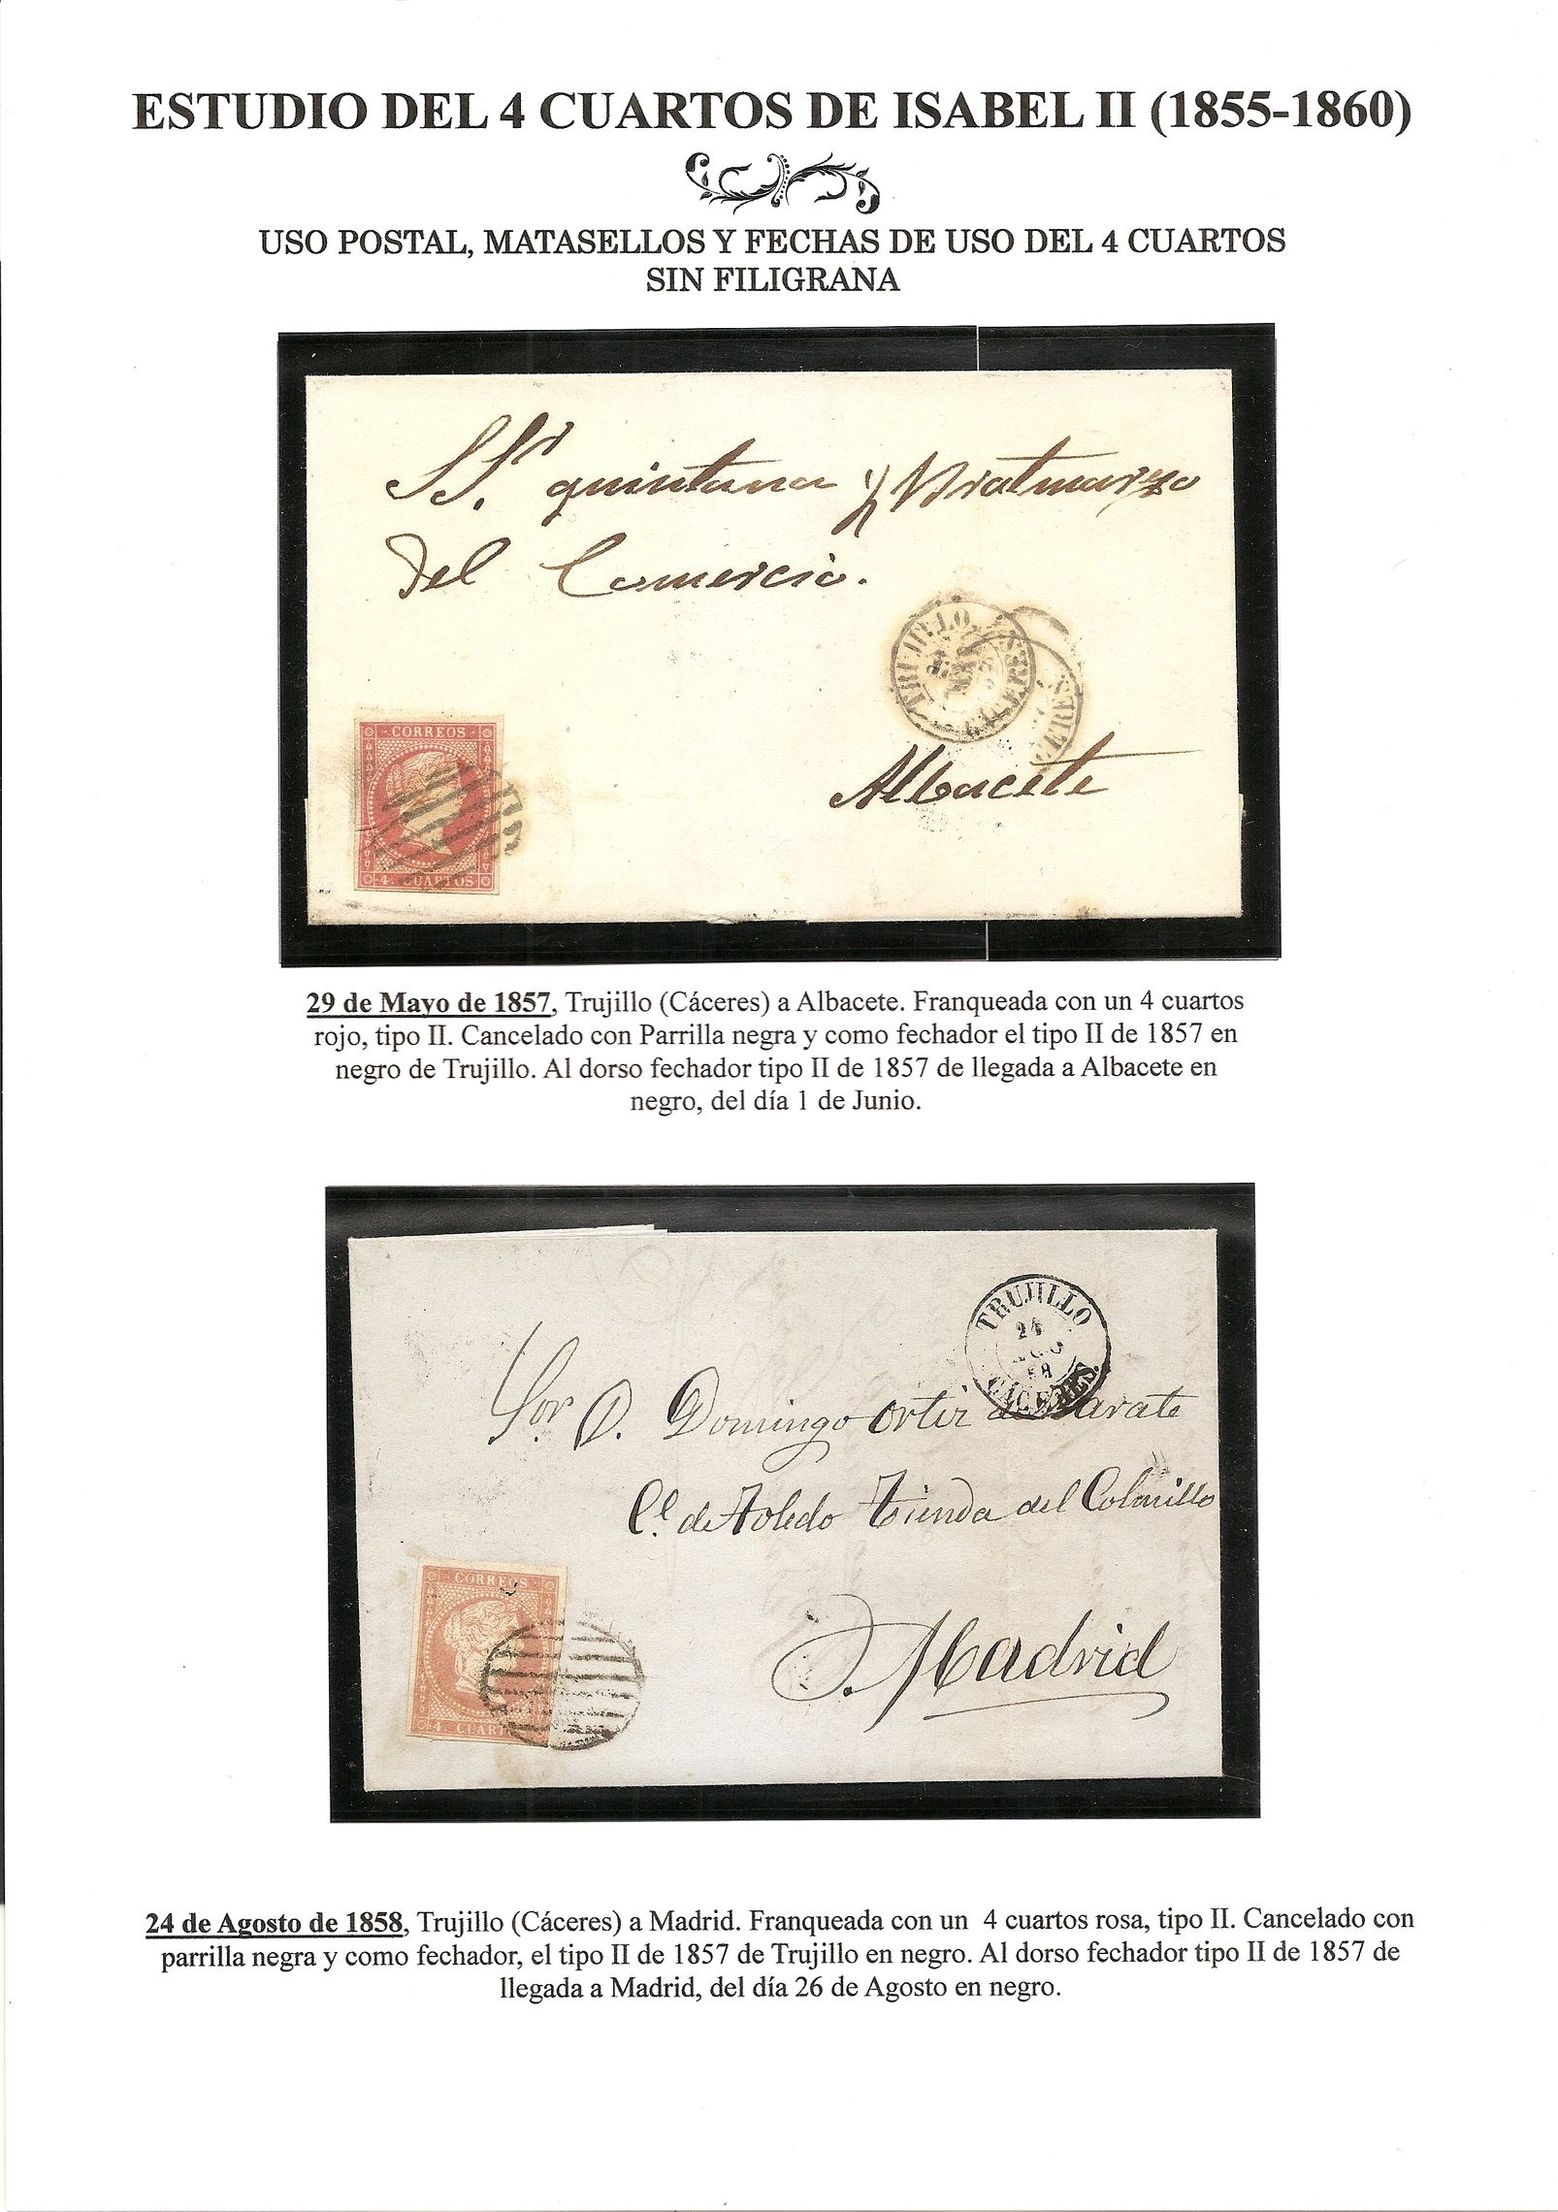 ESTUDIO DEL 4 CUARTOS DE ISABEL II (1855-1860)
USO POSTAL, MATASELLOS Y FECHAS DE USO DEL 4 CUARTOS
SIN FILIGRANA
SSres quintana y
del Comercio.
TRUJILLO
CACERES
CERES
Albacete
CORREOS
4. CUARTOS
29 de Mayo de 1857, Trujillo (Cáceres) a Albacete. Franqueada con un 4 cuartos
rojo, tipo II. Cancelado con Parrilla negra y como fechador el tipo II de 1857 en
negro de Trujillo. Al dorso fechador tipo II de 1857 de llegada a Albacete en
negro, del día 1 de Junio.
TRUJILLO
24
CACERES.
Sor D. Domingo Ortiz de Zarate
Cl. de Toledo Tienda del Colmillo
Madrid
CORREOS
4 CUART
24 de Agosto de 1858, Trujillo (Cáceres) a Madrid. Franqueada con un 4 cuartos rosa, tipo II. Cancelado con
parrilla negra y como fechador, el tipo II de 1857 de Trujillo en negro. Al dorso fechador tipo II de 1857 de
llegada a Madrid, del día 26 de Agosto en negro.